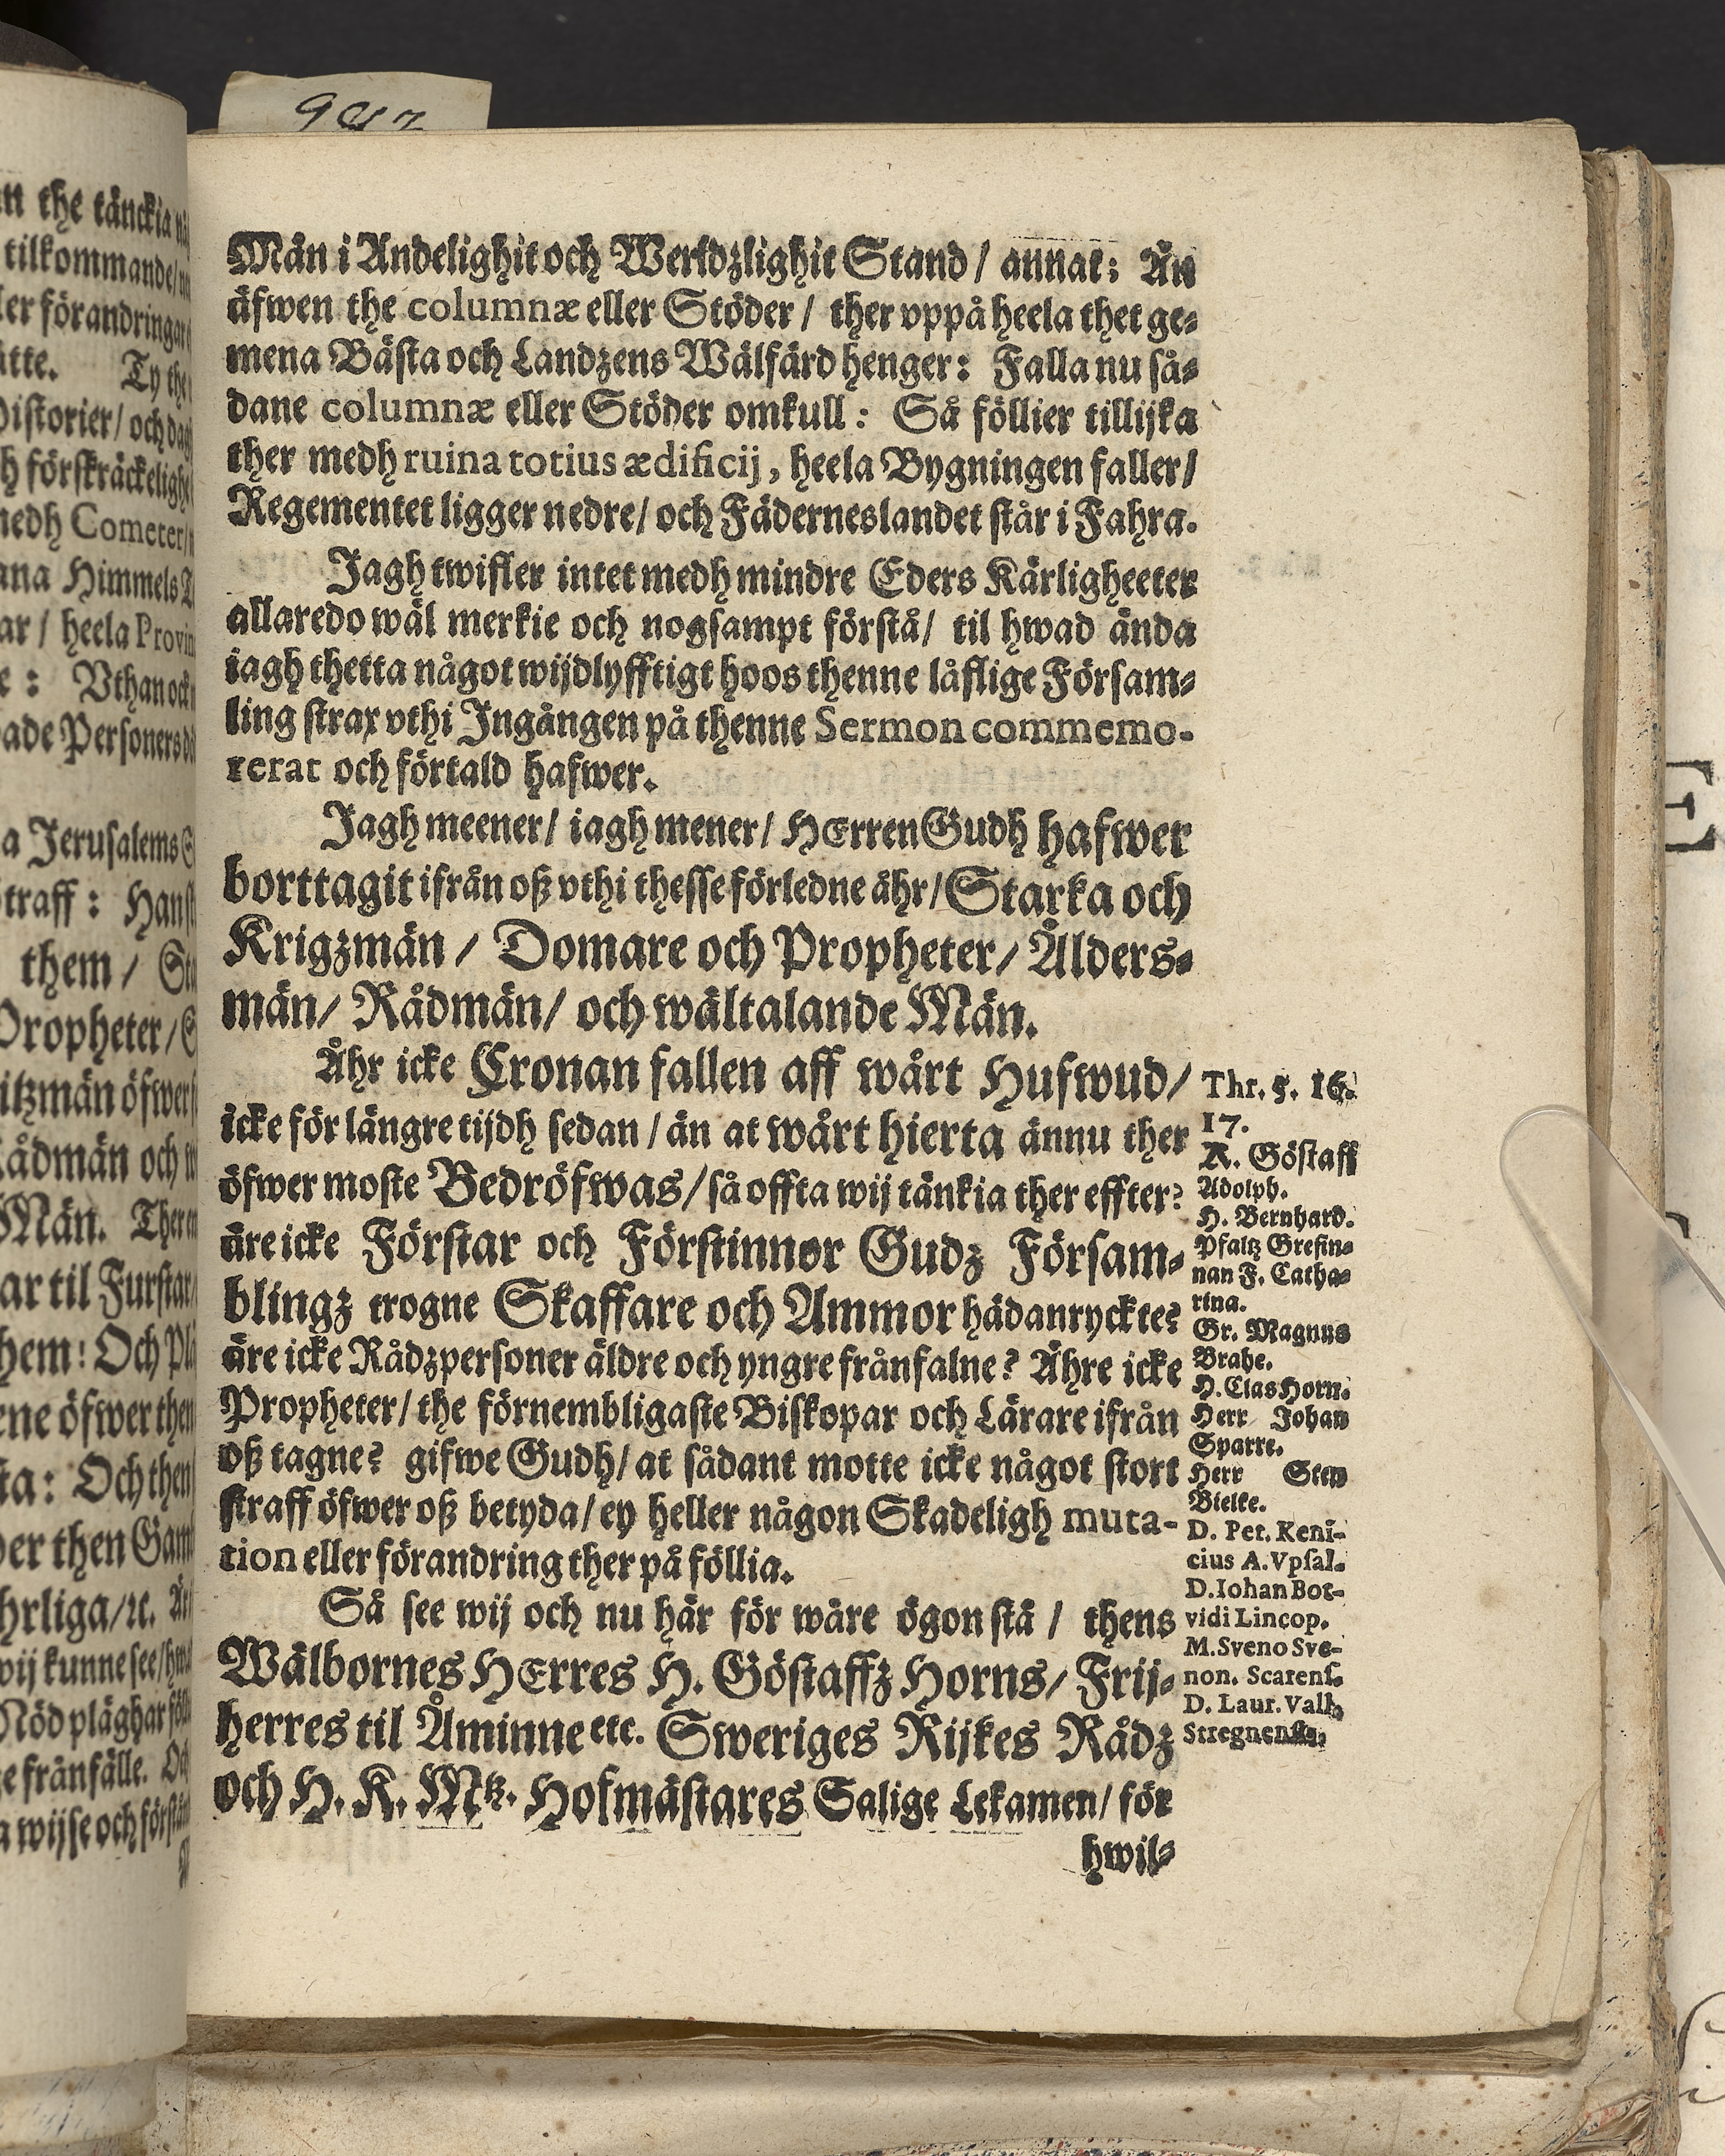 Män i Andelighit och Werldzlighit Stand / annat: Än
äfwen the columnæ eller Stöder / ther vppå heela thet ge-
mena Bästa och Landzens Wälfärd henger: Falla nu så-
dane columnæ eller Stöder omkull: Så föllier tillijka
ther medh ruina totius ædificij, heela Bygningen faller/
Regementet ligger nedre/ och Fäderneslandet står i Fahra.
Jagh twifler intet medh mindre Eders Kärligheeter
allaredo wäl merkie och nogsampt förstå/ til hwad ända
iagh thetta något wijdlyfftigt hoos thenne låflige Försam-
ling strax vthi Ingången på thenne Sermon commemo-
rerat och förtald hafwer.
Jagh meener/ iagh mener/ HErren Gudh hafwer
borttagit ifrån oß vthi thesse förledne ähr/ Starka och
Krigzmän / Domare och Propheter/ Ålders-
män/ Rådmän/ och wältalande Män.
Ähr icke Cronan fallen aff wårt Hufwud/
icke för längre tijdh sedan / än at wårt hierta ännu ther
öfwer moste Bedröfwas/ så offta wij tänkia ther effter?
äre icke Förstar och Förstinnor Gudz Försam-
blingz trogne Skaffare och Ammor hädanryckte?
äre icke Rådzpersoner äldre och yngre frånfalne? Ähre icke
Propheter/ the förnembligaste Biskopar och Lärare ifrån
oß tagne? gifwe Gudh/ at sådant motte icke något stort
straff öfwer oß betyda/ ey heller någon Skadeligh muta-
tion eller förandring ther på föllia.
Så see wij och nu här för wåre ögon stå / thens
Wälbornes HErres H. Göstaffz Horns/ Frij-
herres til Åminne etc. Sweriges Rijkes Rådz
och H. K. Mtz. Hofmästares Salige Lekamen/ för
hwil-
Thr. 5. 16.
17.
K. Göstaff
Adolph.
H. Bernhard.
Pfaltz Grefin-
nan F. Catha-
rina.
Gr. Magnus
Brahe.
H. Clas Horn.
Herr Johan
Sparre.
Herr Sten
Bielke.
D. Pet. Keni-
cius A. Vpsal.
D. Iohan Bot-
vidi Lincop.
M. Sveno Sve-
non. Scarens.
D. Laur. Vall.
Stregnens.